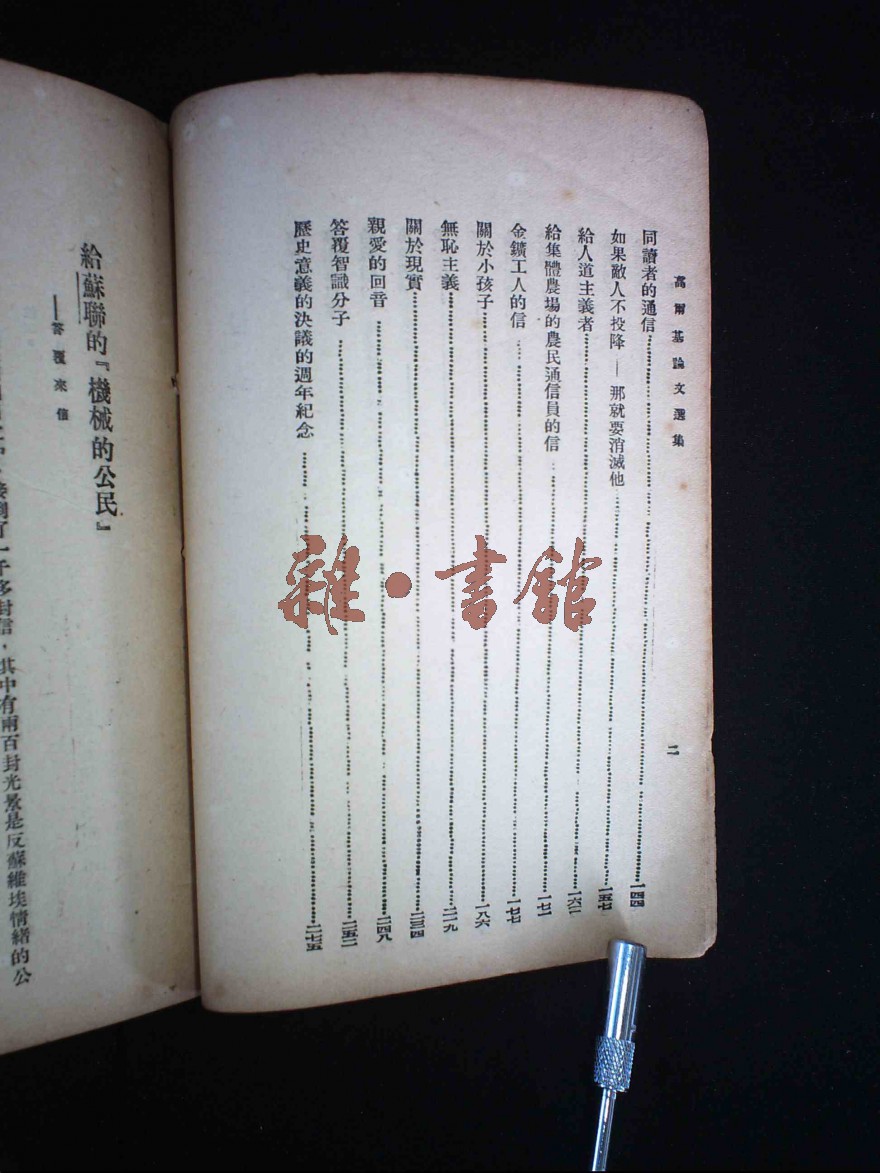 高爾基論文選集
二
同讀者的通信……一四四
如果敵人不投降——那就要消滅他……一五七
給人道主義者……一六二
給集體農場的農民通信員的信……一七一
金鑛工人的信……一七七
關於小孩子……一八六
無恥主義……二一九
關於現實……二三四
親愛的回音……二四八
答覆智識分子……二五二
歷史意義的決議的週年紀念……二七五
雜·書館
給蘇聯的『機械的公民』
——答覆來信
接到了一千多封信，其中有兩百封光景是反蘇維埃情緒的公